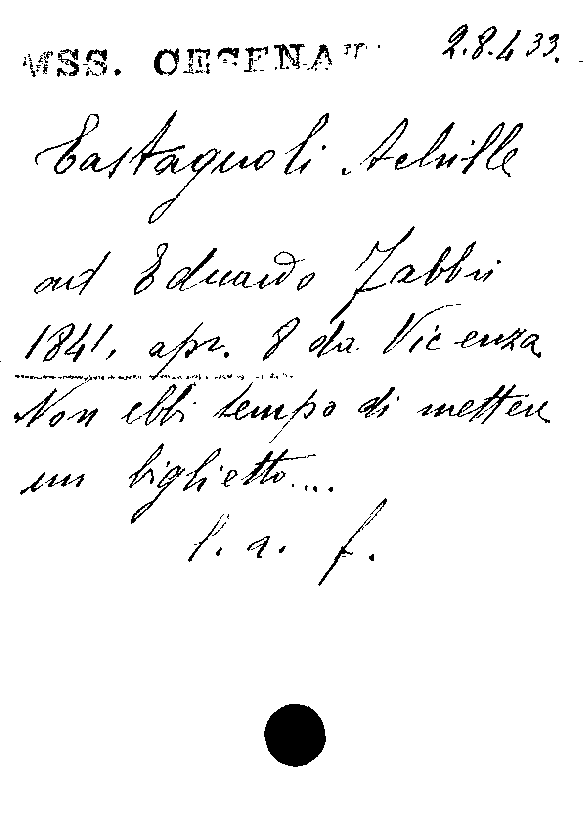 MSS. CESENA 2.8.433.
Castagnoli Achille
ad Eduardo Fabbri
1841, apr. 8 da Vicenza
Non ebbi tempo di mettere
un biglietto....
l. a. f.